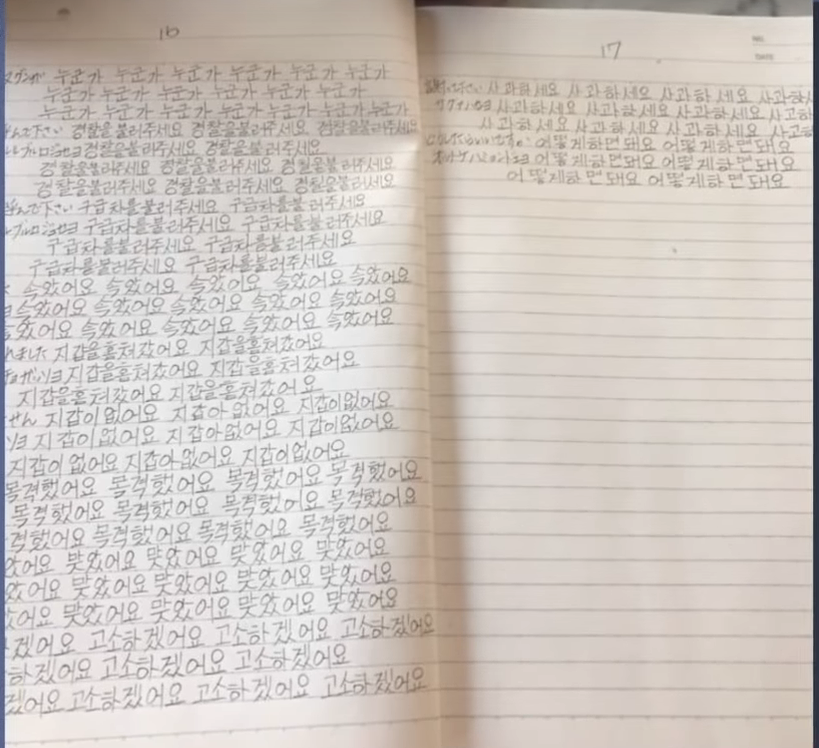 16
누군가 누군가 누군가 누군가 누군가 누군가
누군가 누군가 누군가 누군가 누군가 누군가
누군가 누군가 누군가 누군가 누군가 누군가 누군가
下さい 경찰을불러주세요 경찰을불러주세요 경찰을불러주세요
경찰을불러주세요 경찰을불러주세요
경찰을불러주세요 경찰을불러주세요 경찰을불러주세요
경찰을불러주세요 경찰을불러주세요 경찰을불러주세요
下さい 구급차를불러주세요 구급차를불러주세요
구급차를불러주세요 구급차를불러주세요
구급차를불러주세요 구급차를불러주세요
구급차를불러주세요 구급차를불러주세요
속았어요 속았어요 속았어요 속았어요 속았어요
속았어요 속았어요 속았어요 속았어요 속았어요
속았어요 속았어요 속았어요 속았어요 속았어요
れました 지갑을훔쳐갔어요 지갑을훔쳐갔어요
지갑을훔쳐갔어요 지갑을훔쳐갔어요
지갑을훔쳐갔어요 지갑을훔쳐갔어요
せん 지갑이없어요 지갑아없어요 지갑이없어요
ソヨ 지갑이없어요 지갑아없어요 지갑이없어요
지갑이없어요 지갑아없어요 지갑이없어요
목격했어요 목격했어요 목격했어요 목격했어요
목격했어요 목격했어요 목격했어요 목격했어요
격했어요 목격했어요 목격했어요 목격했어요
았어요 맞았어요 맞았어요 맞았어요 맞았어요
았어요 맞았어요 맞았어요 맞았어요 맞았어요
았어요 맞았어요 맞았어요 맞았어요 맞았어요
겠어요 고소하겠어요 고소하겠어요 고소하겠어요
하겠어요 고소하겠어요 고소하겠어요
겠어요 고소하겠어요 고소하겠어요 고소하겠어요
17
NO.
DATE
下さい 사과하세요 사과하세요 사과하세요 사과하
사과하세요 사과하세요 사과하세요
사과하세요 사과하세요 사과하세요
어떻게하면돼요 어떻게하면돼요
어떻게하면돼요 어떻게하면돼요
어떻게하면돼요 어떻게하면돼요